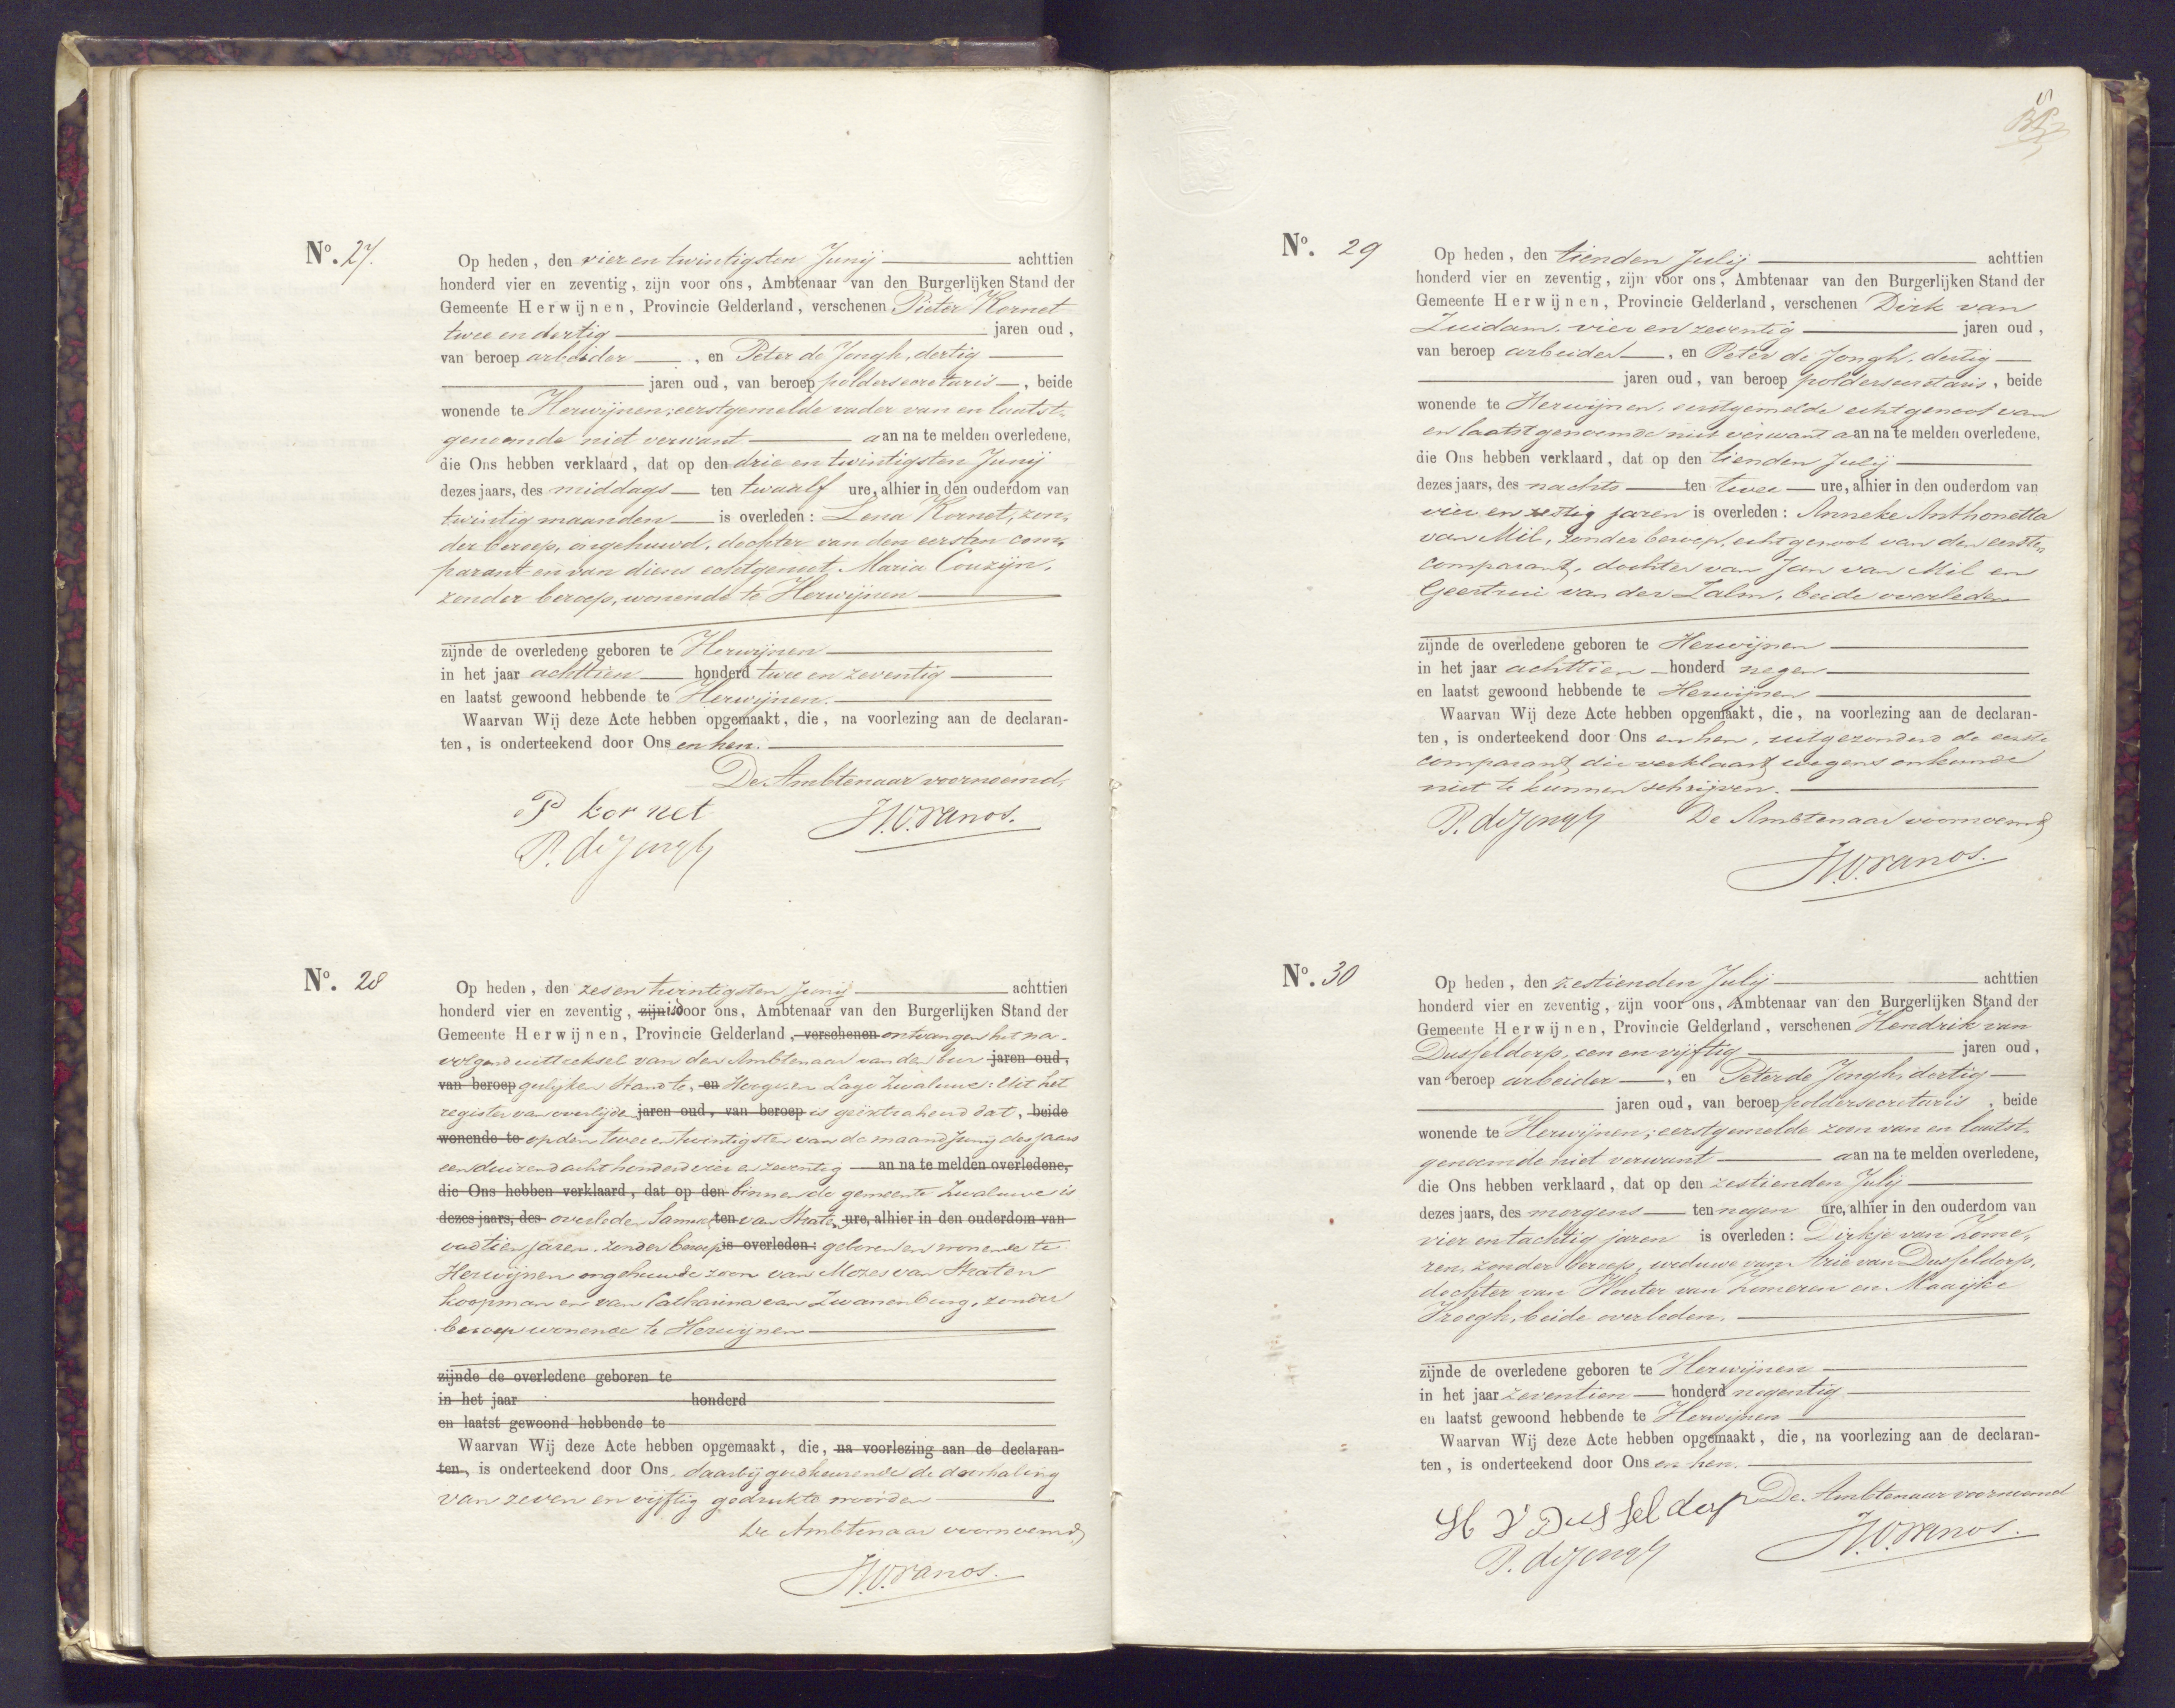 No. 27.
Op heden, den vier en twintigsten Junij achttien
honderd vier en zeventig, zijn voor ons, Ambtenaar van den Burgerlijken Stand der
Gemeente Herwijnen, Provincie Gelderland, verschenen Pieter Kornet
twee en dertig jaren oud,
van beroep arbeider, en Peter de Jongh, dertig
jaren oud, van beroep poldersecretaris, beide
wonende te Herwijnen; eerstgemelde vader van en laatst-
genoemde niet verwant aan na te melden overledene,
die Ons hebben verklaard, dat op den drie en twintigsten Junij
dezes jaars, des middags ten twaalf ure, alhier in den ouderdom van
twintig maanden is overleden: Lena Kornet, zon-
der beroep, ongehuwd, dochter van den eersten com-
parant en van diens echtgenoot Maria Couzijn,
zonder beroep, wonende te Herwijnen
zijnde de overledene geboren te Herwijnen
in het jaar achttien honderd twee en zeventig
en laatst gewoond hebbende te Herwijnen.
Waarvan Wij deze Acte hebben opgemaakt, die, na voorlezing aan de declaran-
ten, is onderteekend door Ons en hen.
De Ambtenaar voornoemd,
P kornet
P. de Jongh
No. 28
Op heden, den zes en twintigsten Junij achttien
honderd vier en zeventig, zijn is door ons, Ambtenaar van den Burgerlijken Stand der
Gemeente Herwijnen, Provincie Gelderland, verschenen ontvangen het na-
volgend uittreksel van den Ambtenaar van den bur jaren oud,
van beroep gelijken Stand te, en Hooge en Lage Zwaluwe: Uit het
register van overlijden jaren oud, van beroep is geëxtraheerd dat, beide
wonende te op den twee en twintigsten van de maand Junij des jaars
een duizend acht honderd vier en zeventig aan na te melden overledene,
die Ons hebben verklaard, dat op den binnen de gemeente Zwaluwe is
dezes jaars, des overleden Samuel ten van Straten ure, alhier in den ouderdom van
oud tien jaren, zonder beroep is overleden: geboren en wonende te
Herwijnen ongehuwde zoon van Mozes van Straten
koopman en van Catharina van Zwanenburg, zonder
beroep wonende te Herwijnen
zijnde de overledene geboren te
in het jaar honderd
en laatst gewoond hebbende te
Waarvan Wij deze Acte hebben opgemaakt, die, na voorlezing aan de declaran-
ten, is onderteekend door Ons, daarbij goedkeurende de doorhaling
van zeven en vijftig gedrukte woorden
De Ambtenaar voornoemd,
No. 29
Op heden, den tienden Julij achttien
honderd vier en zeventig, zijn voor ons, Ambtenaar van den Burgerlijken Stand der
Gemeente Herwijnen, Provincie Gelderland, verschenen Dirk van
Zuidam, vier en zeventig jaren oud,
van beroep arbeider, en Peter de Jongh, dertig
jaren oud, van beroep poldersecretaris, beide
wonende te Herwijnen, eerstgemelde echtgenoot van
en laatstgenoemde niet verwant aan na te melden overledene,
die Ons hebben verklaard, dat op den tienden Julij
dezes jaars, des nachts ten twee ure, alhier in den ouderdom van
vier en zestig jaren is overleden: Anneke Anthonetta
van Mil, zonder beroep, echtgenoot van den eersten
comparant, dochter van Jan van Mil en
Geertrui van der Zalm, beide overleden
zijnde de overledene geboren te Herwijnen
in het jaar achttien honderd negen
en laatst gewoond hebbende te Herwijnen
Waarvan Wij deze Acte hebben opgemaakt, die, na voorlezing aan de declaran-
ten, is onderteekend door Ons en hen, uitgezonderd de eerste
comparant, die verklaart wegens onkunde
niet te kunnen schrijven.
P. de Jongh De Ambtenaar voornoemd
No. 30
Op heden, den zestienden Julij achttien
honderd vier en zeventig, zijn voor ons, Ambtenaar van den Burgerlijken Stand der
Gemeente Herwijnen, Provincie Gelderland, verschenen Hendrik van
Dusseldorp, een en vijftig jaren oud,
van beroep arbeider, en Peter de Jongh, dertig
jaren oud, van beroep poldersecretaris, beide
wonende te Herwijnen; eerstgemelde zoon van en laatst-
genoemde niet verwant aan na te melden overledene,
die Ons hebben verklaard, dat op den zestienden Julij
dezes jaars, des morgens ten negen ure, alhier in den ouderdom van
vier en tachtig jaren is overleden: Dirkje van Zome-
ren, zonder beroep, weduwe van Arie van Dusseldorp,
dochter van Wouter van Zomeren en Maaijke
Kroegh, beide overleden.
zijnde de overledene geboren te Herwijnen
in het jaar zeventien honderd negentig
en laatst gewoond hebbende te Herwijnen
Waarvan Wij deze Acte hebben opgemaakt, die, na voorlezing aan de declaran-
ten, is onderteekend door Ons en hen.
H V Dusseldorp De Ambtenaar voornoemd
P. de Jongh